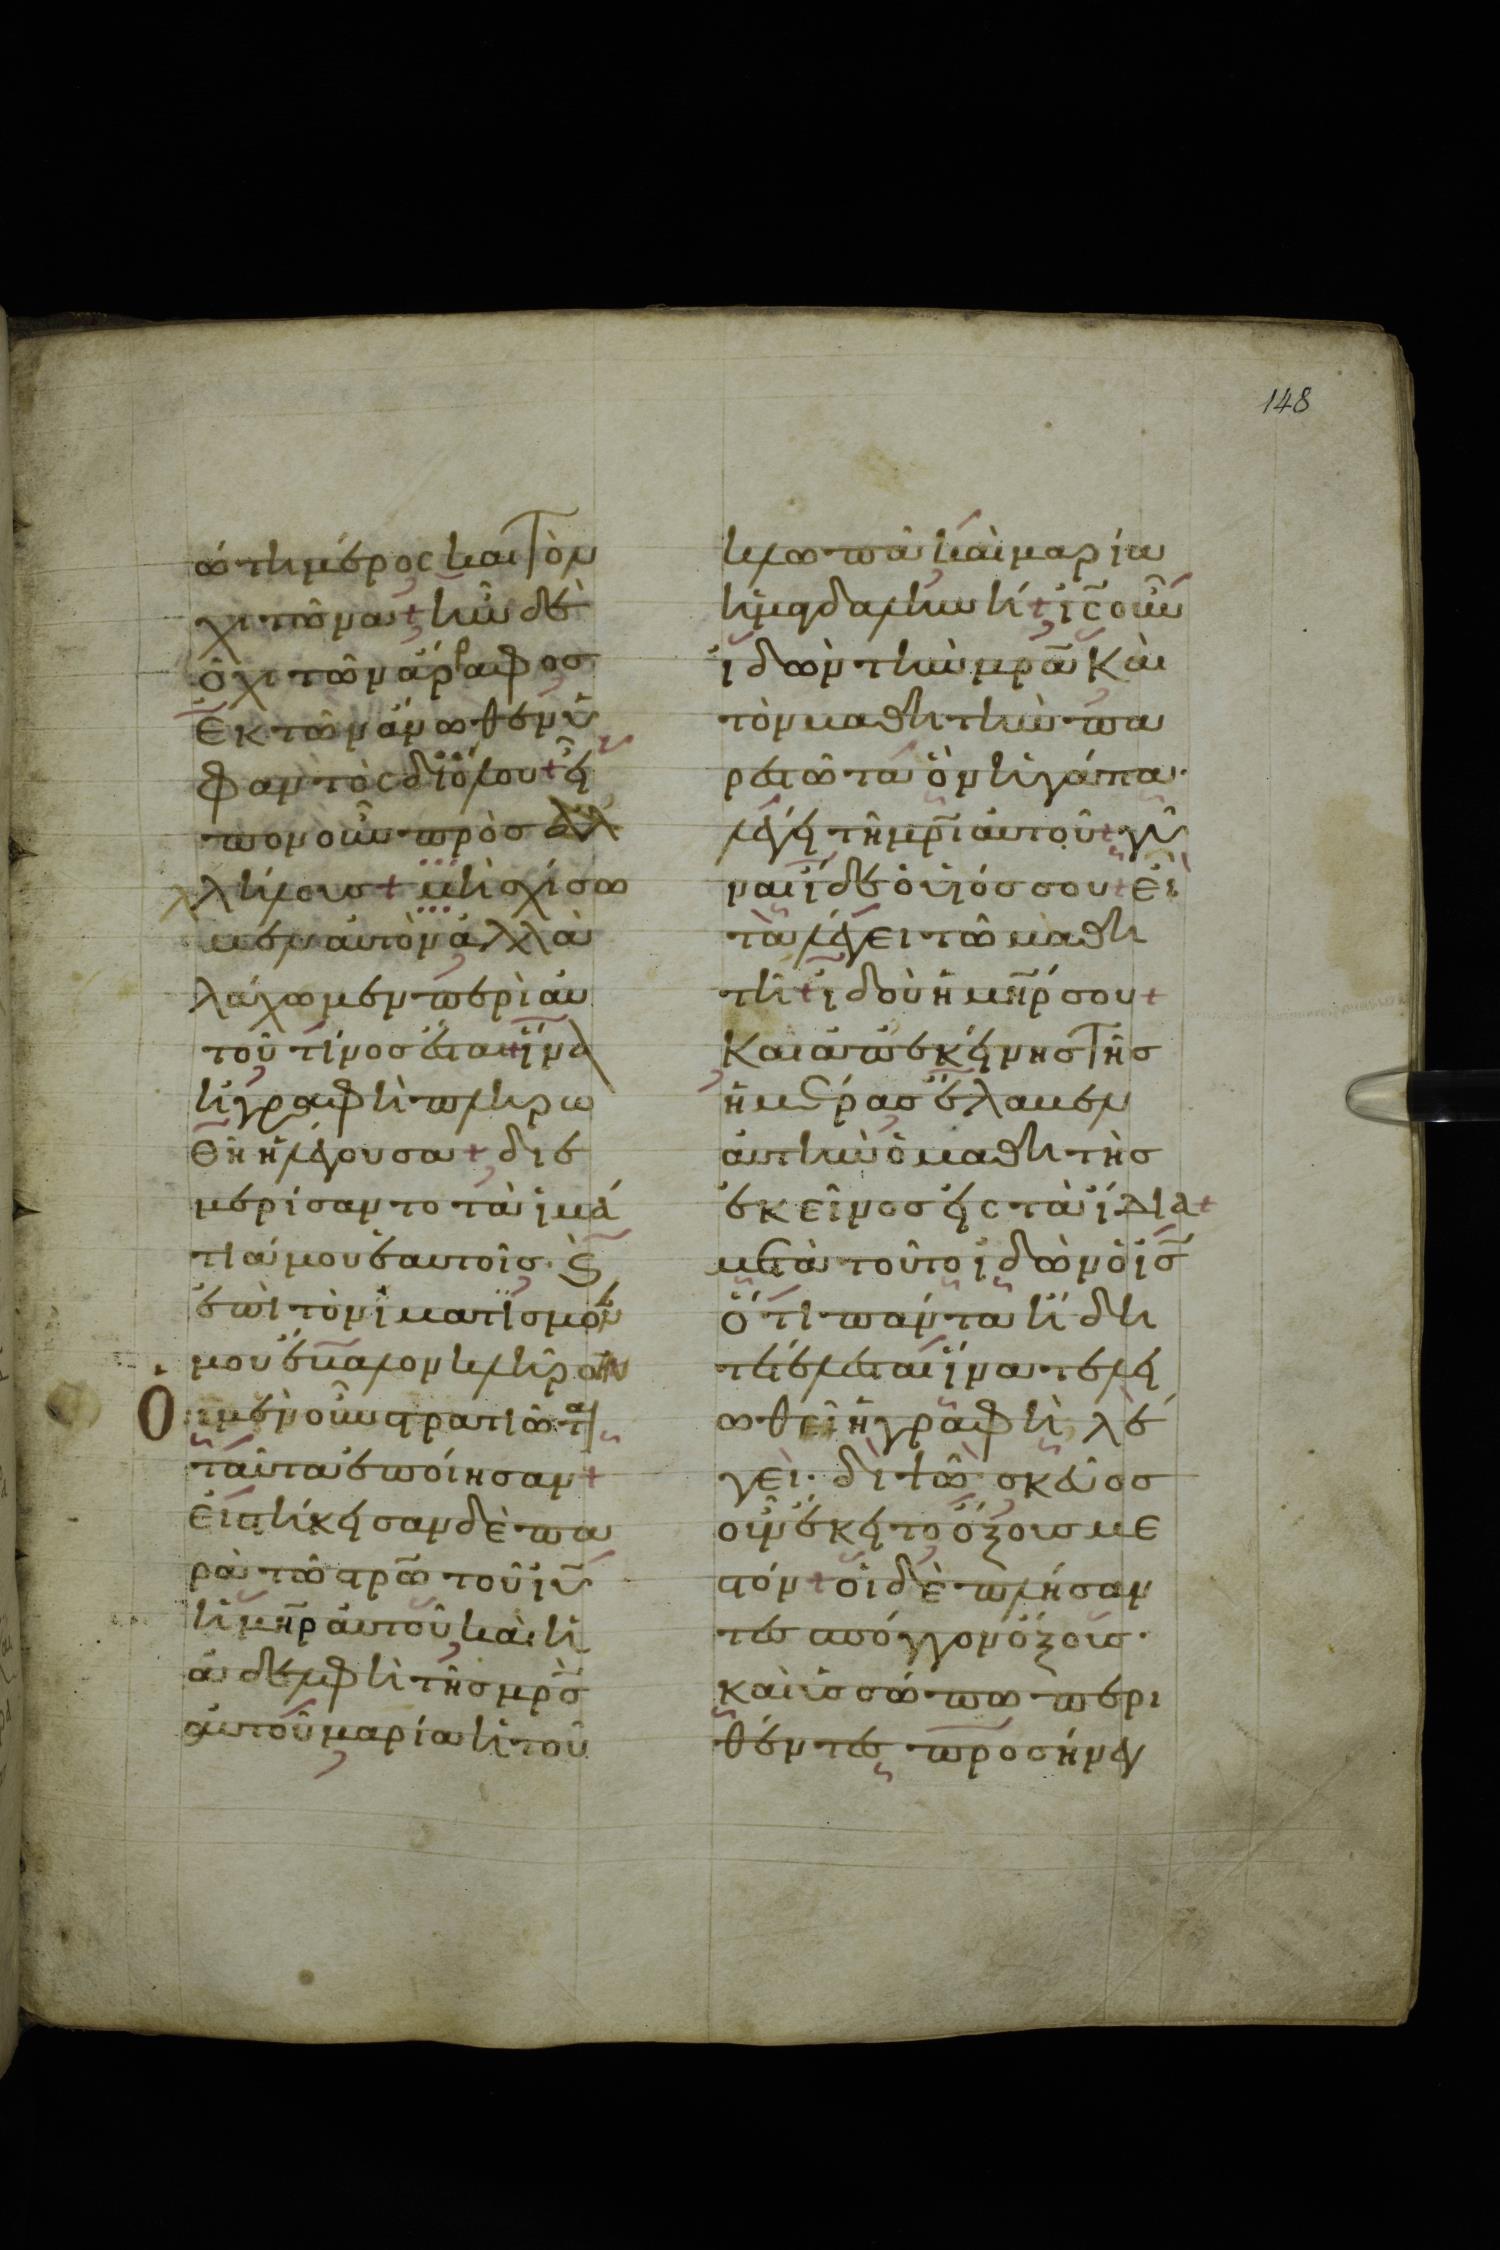 148
ώτη μέρος και τὸν
χιτῶνα + ἦν δὲ
ὁ χιτῶν ἄρραφος
ἐκ τῶν ἄνωθεν ὑ
φαντὸς δι ὅλου + εἶ
πον οὖν πρὸς ἀλ
λήλους + μὴ σχίσω
μεν αὐτὸν ἀλλὰ
λάχωμεν περὶ αυ
τοῦ τίνος ἔσται + ἵνα
ἡ γραφὴ πληρω
θῆ ἡ λέγουσα + διε
μερίσαντο τὰ ἱμά
τιά μου ἑαυτοῖς · καὶ
ἐπὶ τὸν ἱματισμόν
μου ἔβαλον κλῆρον
Οἱ μὲν οὖν στρατιῶται
ταῦτα ἐποίησαν +
εἱστήκεισαν δὲ πα
ρὰ τῶ στρῶ τοῦ ιῦ
ἡ μηρ αὐτοῦ καὶ ἡ
ἀδελφὴ τῆς μρς
αὐτοῦ μαρία ἡ τοῦ
κλωπᾶ καὶ μαρία
ἡ μαγδαληνή + ις οὖν
ἰδὼν τὴν μρα καὶ
τὸν μαθητὴν πα
ρεστῶτα ὃν ἠγάπα ·
λέγει τῆ μρι αὐτοῦ + γύ
ναι ἴδε ὁ υἱός σου + εἶ
τα λέγει τῶ μαθη
τῆ + ἰδοὺ ἡ μηρ σου +
Και ἀπ ἐκείνης τῆς
ἡμέρας ἔλαβεν
αὐτὴν ὁ μαθητὴς
ἐκεῖνος εἰς τὰ ἴδια +
μετὰ τοῦτο ἰδὼν ὁ ις
ὅτι πάντα ἤδη
τετέλεσται ἵνα τελει
ωθεῖ ἡ γραφὴ λέ
γει · διψῶ σκεῦος
οὖν ἔκειτο ὄξους με
στόν + οἱ δὲ πλήσαν
τες σπόγγον ὄξους ·
καὶ ὑσσώπω περι
θέντες προσήνεγ